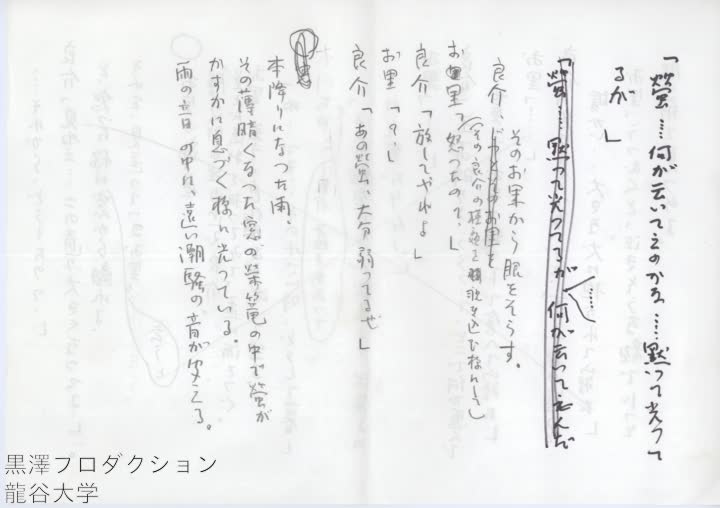 「螢……何が云いてえのかな……黙って光って
るが」
「螢……黙って光ってるが
何が云いてえんだ
……
そのお里から眼をそらす。
良介
お里「怒ったの？」
（その良介の様子を覗き込む様にして）
良介「放してやれよ」
お里「？」
良介「あの螢、大分弱ってるぜ」
本降りになった雨。
その薄暗くなった窓の螢籠の中で螢が
かすかに息づく様に光っている。
雨の音の中に、遠い潮騒の音が聞える。
黒澤プロダクション
龍谷大学